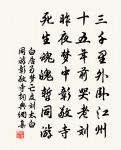 三千里外卧江州
十五年前哭老刘
昨夜梦中彰敬寺
死生魂魄暂同游
白居易梦亡友刘太白
同游彰敬寺词典网集